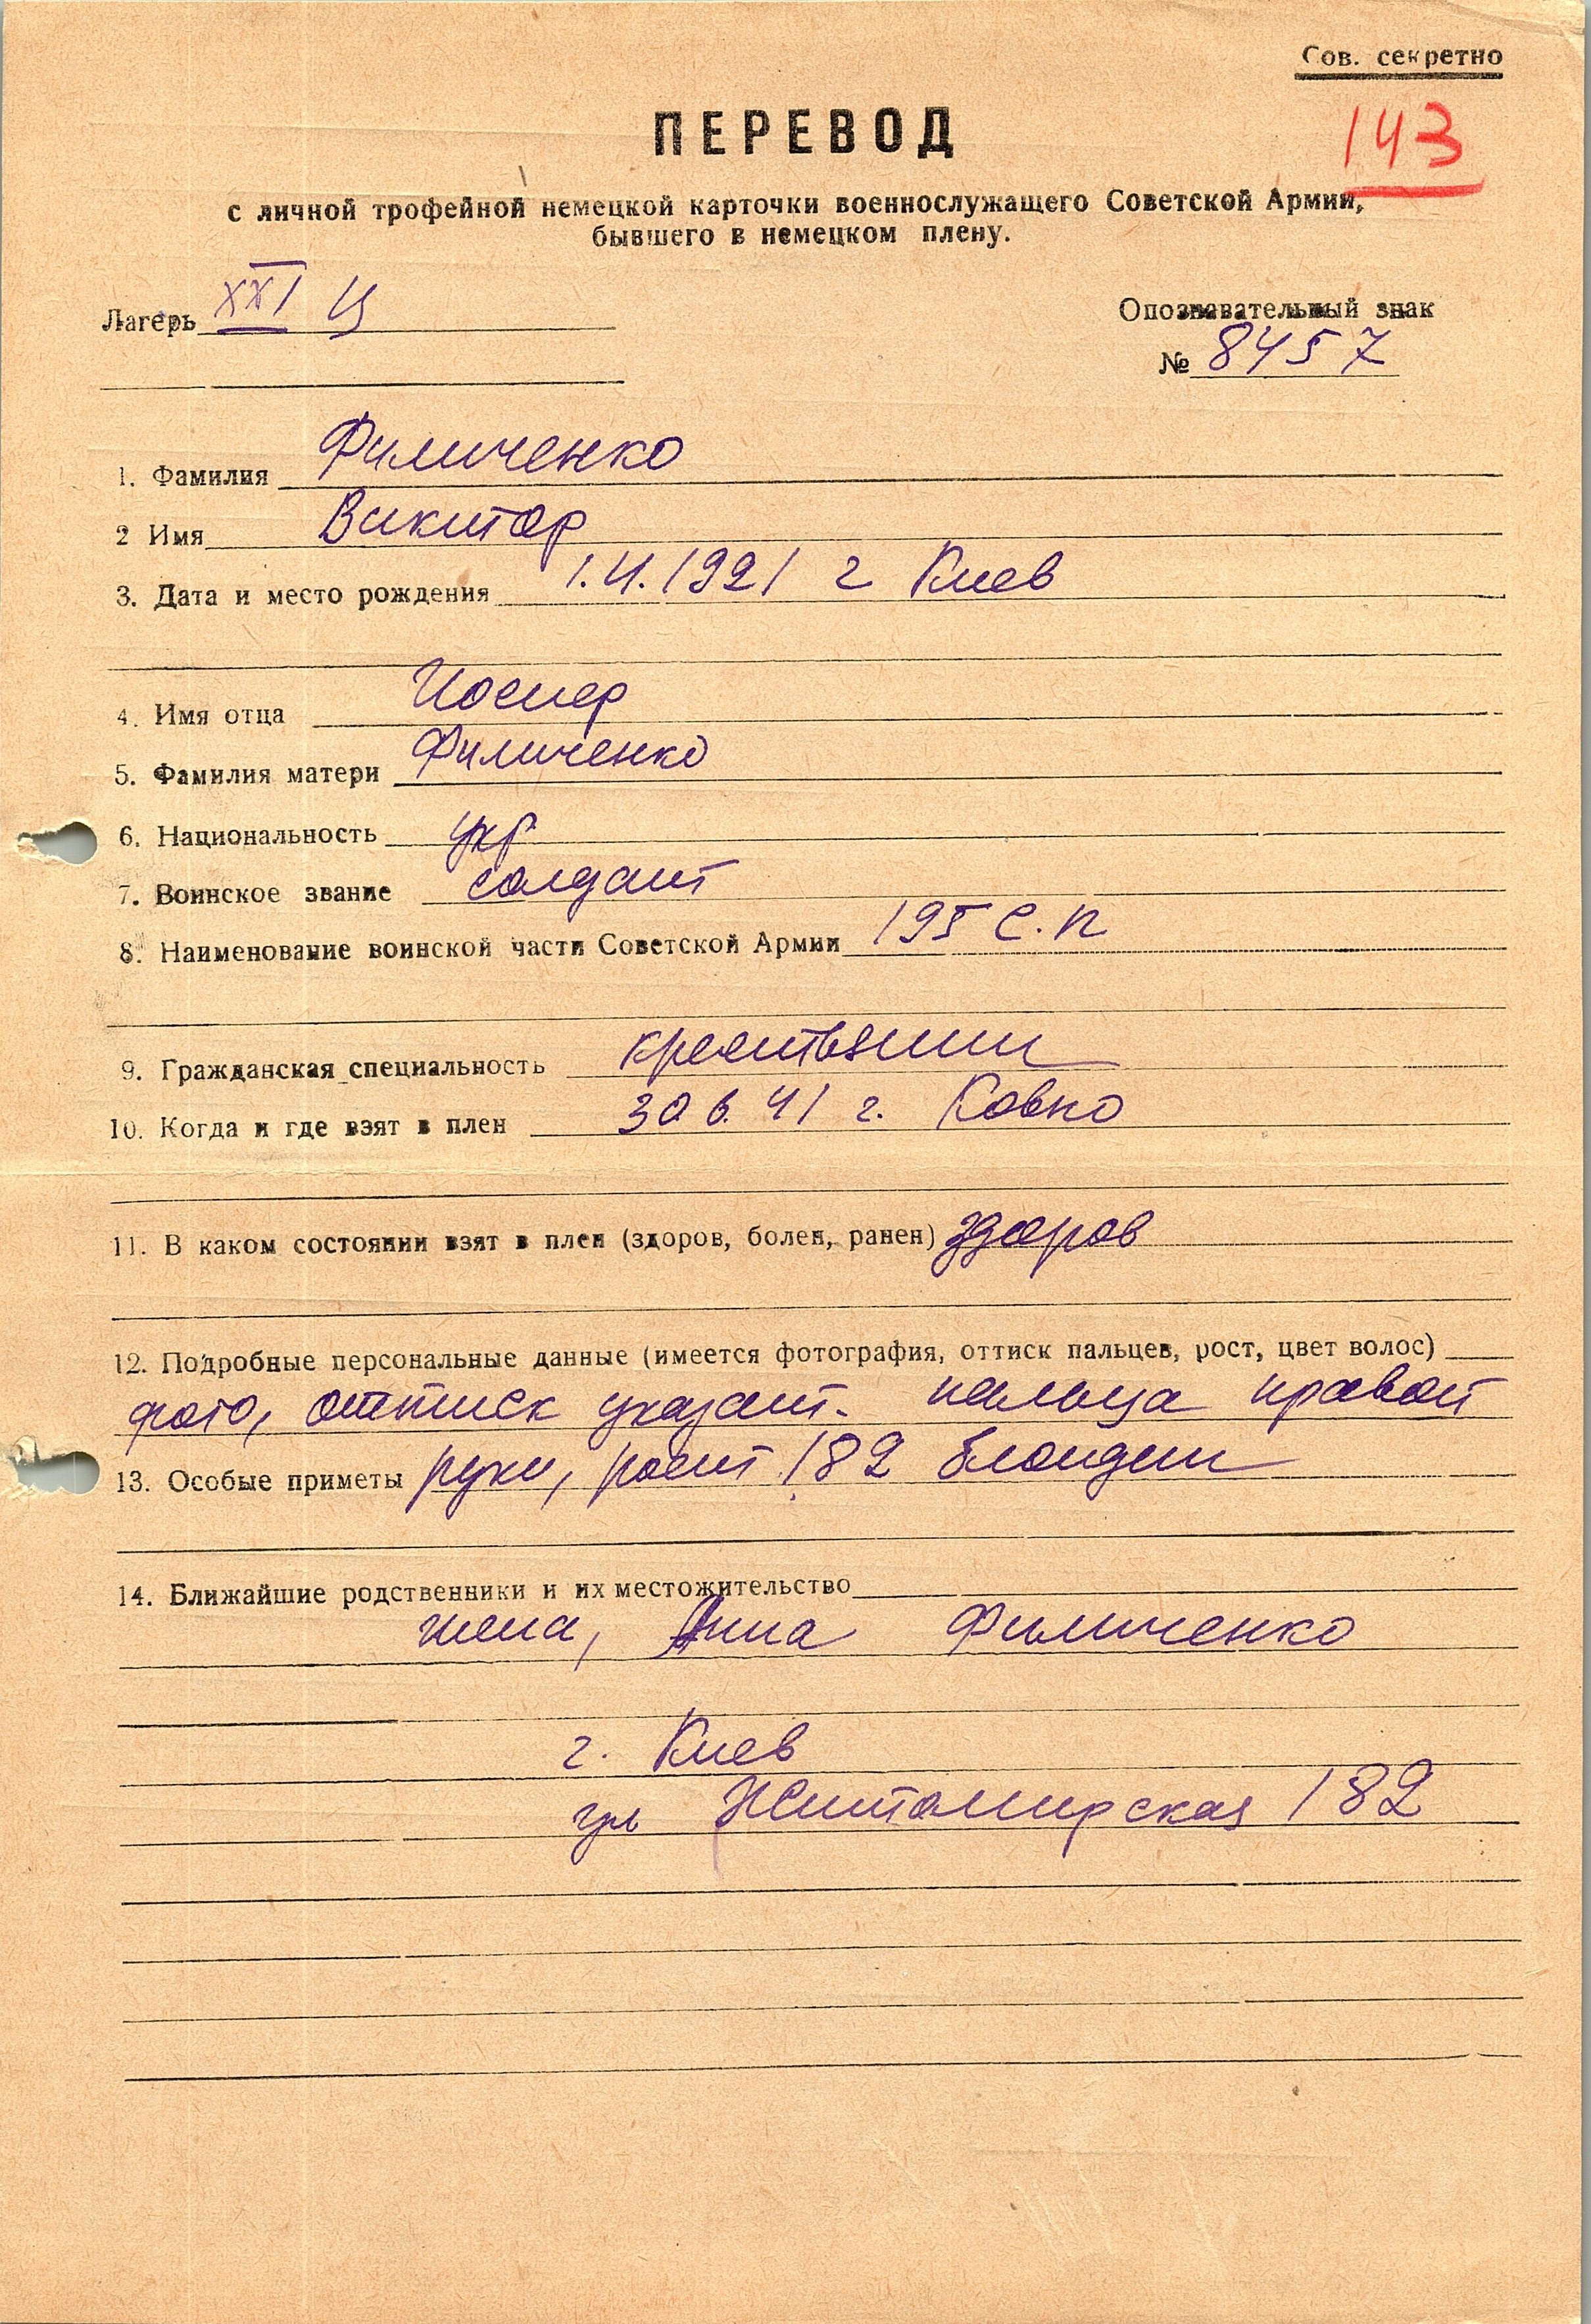 Сов. секретно
143
ПЕРЕВОД
с личной трофейной немецкой карточки военнослужащего Советской Армии,
бывшего в немецком плену.
Лагерь XXI Ц
Опознавательный знак
№ 8457
1. Фамилия Филиченко
2 Имя Виктор
3. Дата и место рождения 1.4.1921 г Киев
4. Имя отца
5. Фамилия матери Филиченко
6. Национальность укр
7. Воинское звание солдат
8. Наименование воинской части Советской Армии 195 С.П
9. Гражданская специальность крестьянин
10. Когда и где взят в плен 30 6. 41 г. Ковно
11. В каком состоянии взят в плен (здоров, болен, ранен) здоров
12. Подробные персональные данные (имеется фотография, оттиск пальцев, рост, цвет волос)
фото, оттиск указат. пальца правой
13. Особые приметы руки, рост 182 блондин
14. Ближайшие родственники и их местожительство
жена, Анна Филиченко
г. Киев
ул Житомирская 182